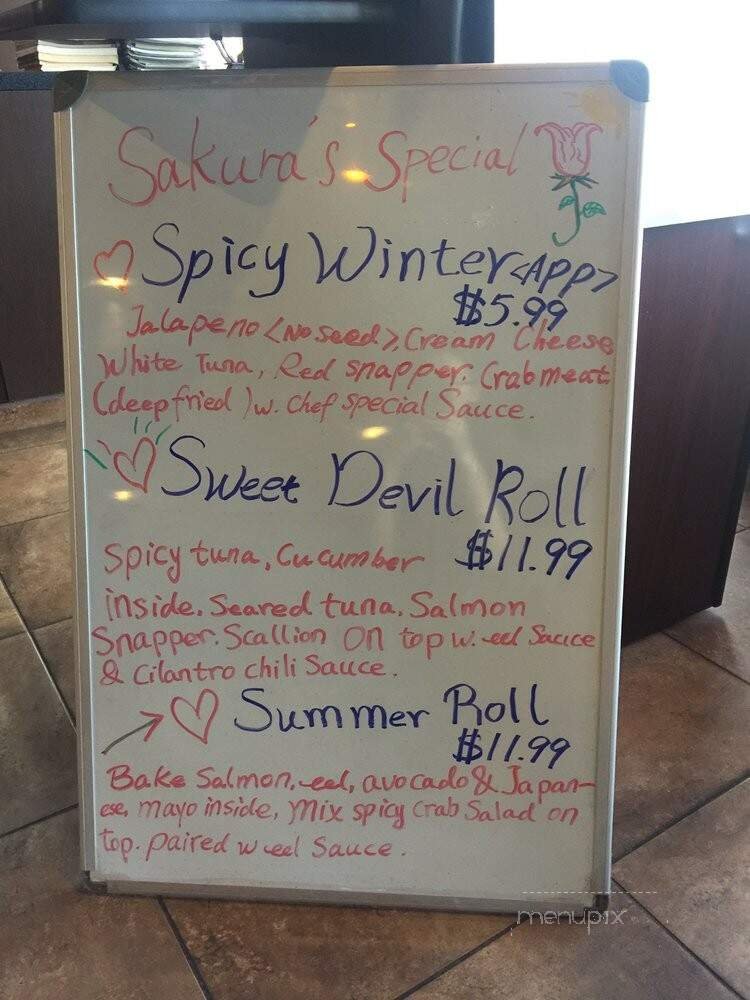 Sakura's Special
Spicy Winter <APP>
$5.99
Jalapeno <No seed>, Cream Cheese
White Tuna, Red snapper. Crabmeat
(deep fried) w. Chef special Sauce.
Sweet Devil Roll
$11.99
Spicy tuna, Cucumber
inside. Seared tuna. Salmon
Snapper. Scallion on top w. eel Sauce
& Cilantro chili Sauce.
Summer Roll
$11.99
Bake Salmon, eel, avocado & Japan-
ese, mayo inside, Mix spicy crab Salad on
top. paired w eel Sauce.
menupix